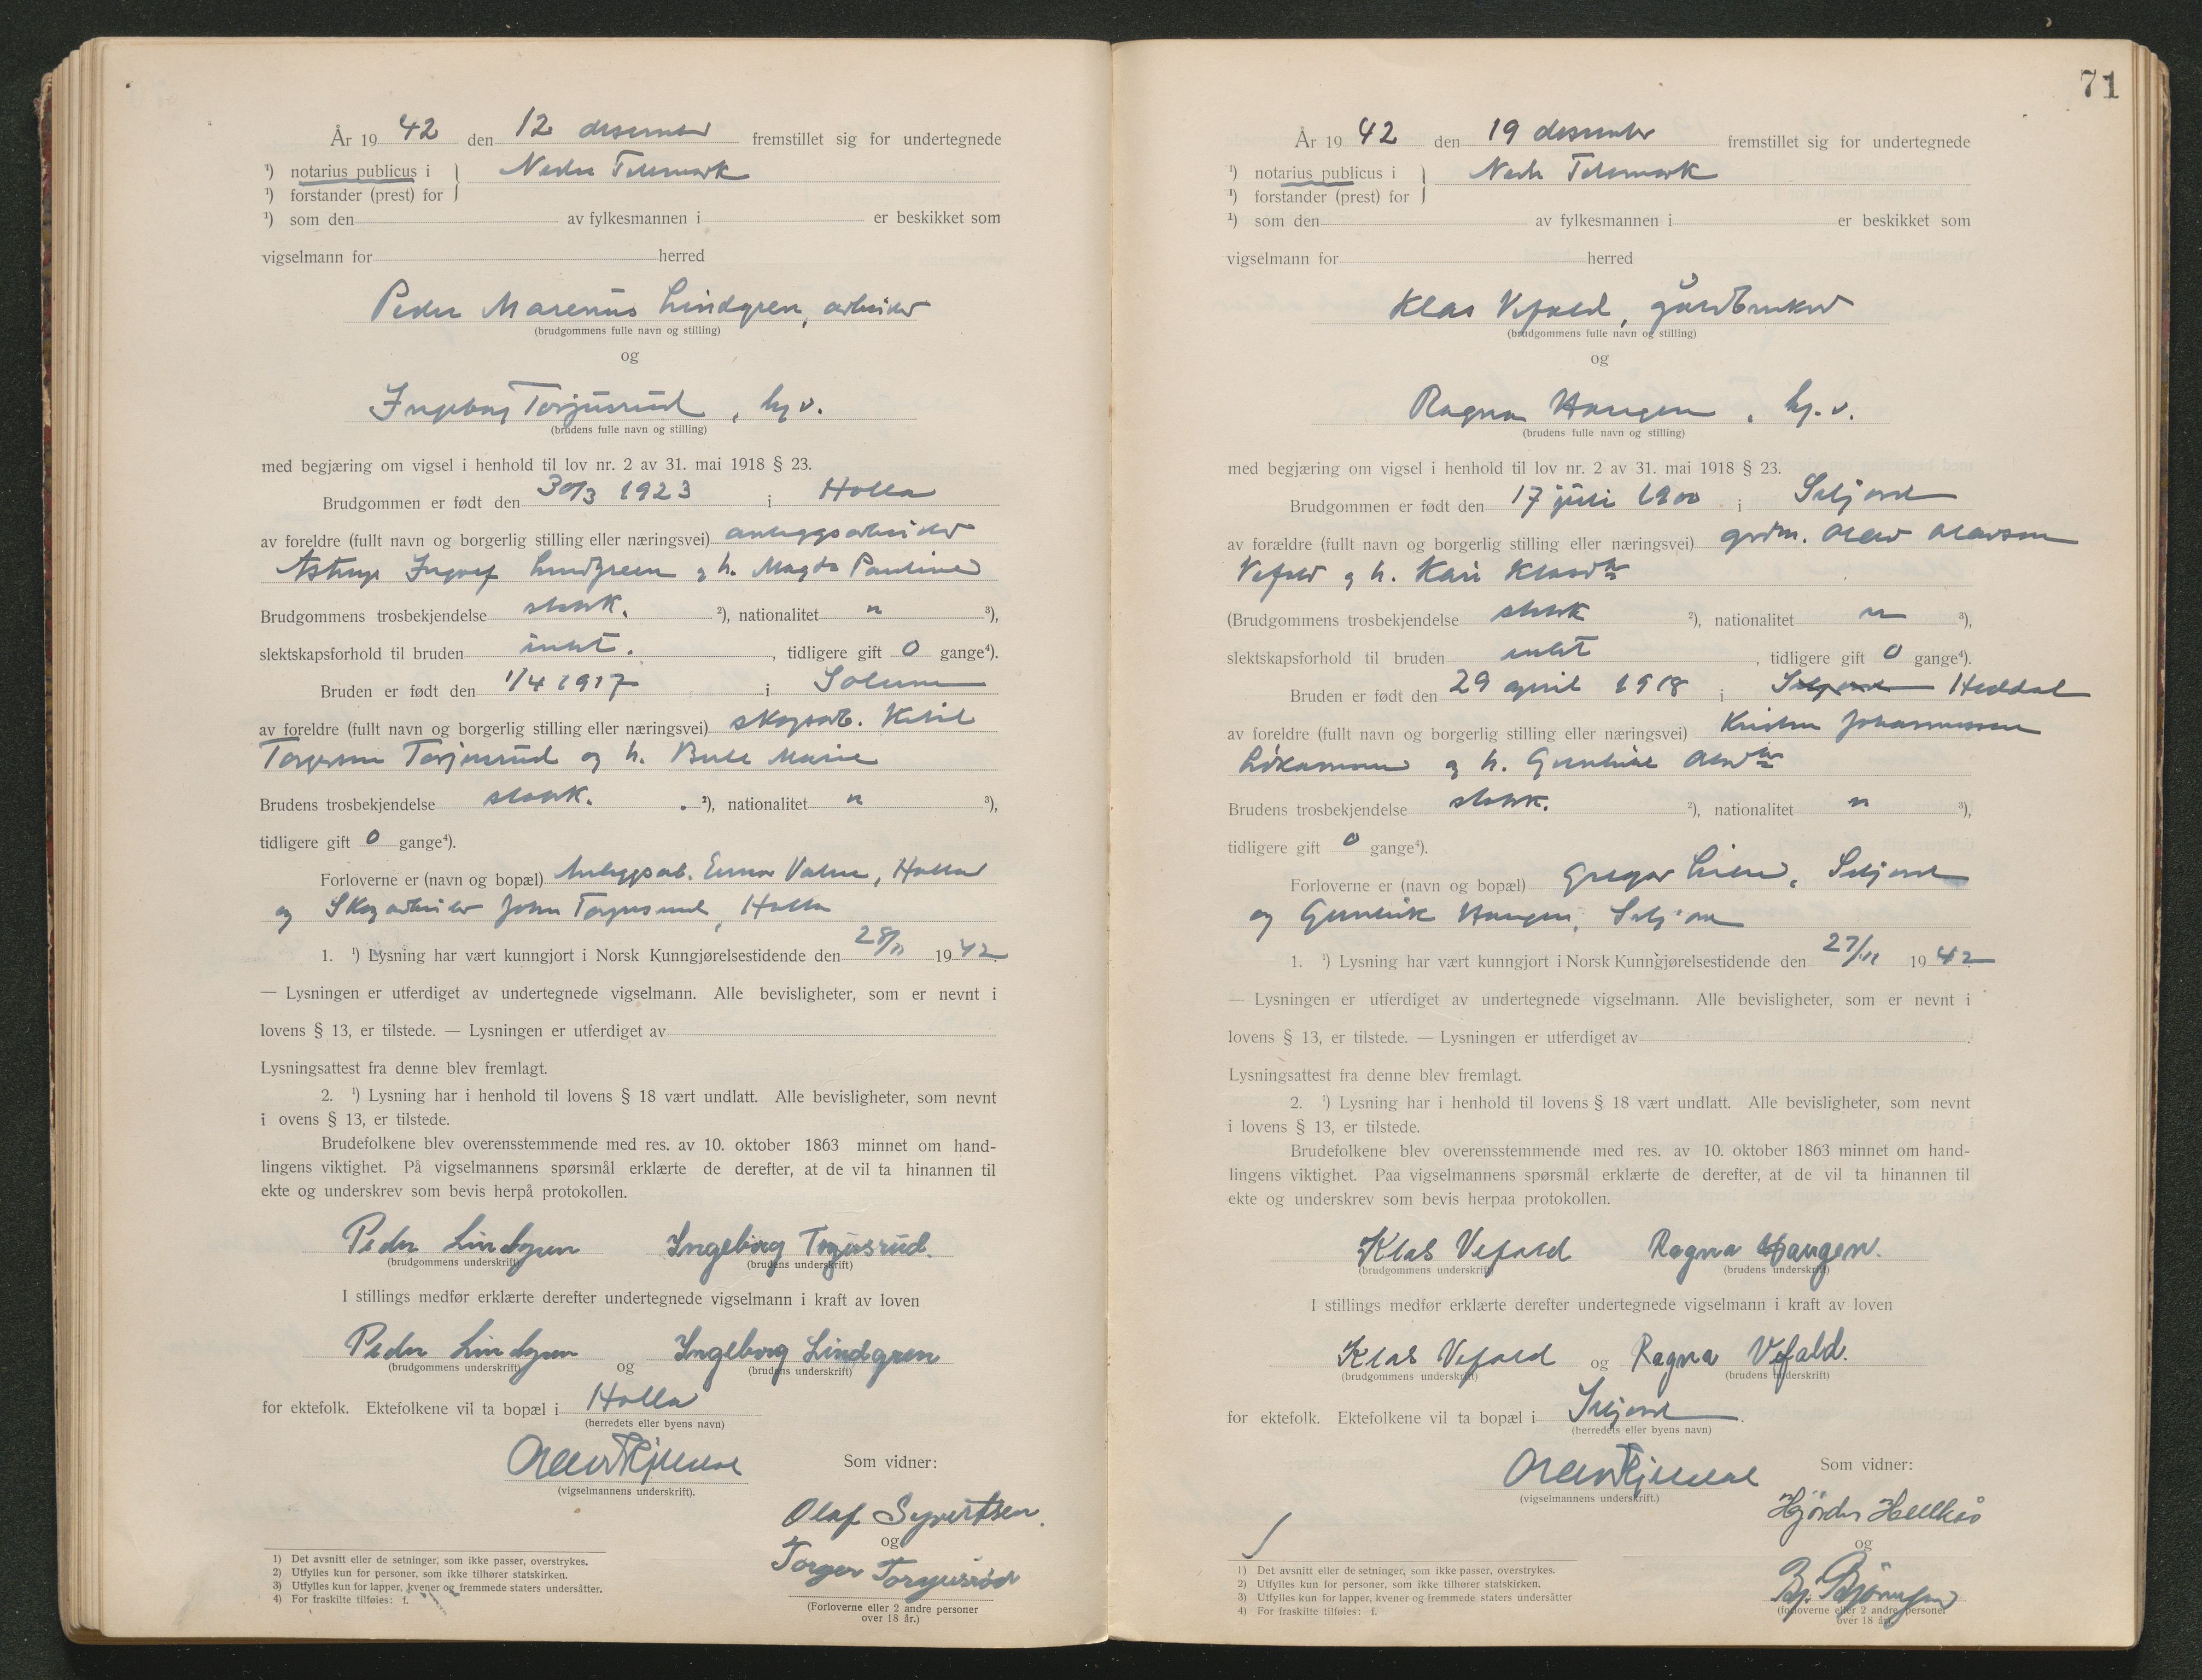 År 19 42 den 12 desember fremstillet sig for undertegnede
¹) notarius publicus i } Nedre Telemark
¹) forstander (prest) for
¹) som den av fylkesmannen i er beskikket som
vigselmann for herred
Peder Marenus Lindgren, arbeider
(brudgommens fulle navn og stilling)
og
Ingeborg Torjusrud, hj.v.
(brudens fulle navn og stilling)
med begjæring om vigsel i henhold til lov nr. 2 av 31. mai 1918 § 23.
Brudgommen er født den 30/3 1923 i Holla
av foreldre (fullt navn og borgerlig stilling eller næringsvei) anleggsarbeider
Ingolf Lindgreen og h. Magda Pauline
Brudgommens trosbekjendelse statsk. ²), nationalitet n ³),
slektskapsforhold til bruden intet. , tidligere gift 0 gange⁴).
Bruden er født den 1/4 1917 i Solum
av foreldre (fullt navn og borgerlig stilling eller næringsvei) skogsarb. Ketil
Torgersen Torjusrud og h. Marie
Brudens trosbekjendelse statsk. ²), nationalitet n ³),
tidligere gift 0 gange⁴).
Forloverne er (navn og bopæl) Anleggsarb. Holla
og Skogarbeider John Torjusrud, Holla
1. ¹) Lysning har vært kunngjort i Norsk Kunngjørelsestidende den 28/11 1942.
— Lysningen er utferdiget av undertegnede vigselmann. Alle bevisligheter, som er nevnt i
lovens § 13, er tilstede. — Lysningen er utferdiget av
Lysningsattest fra denne blev fremlagt.
2. ¹) Lysning har i henhold til lovens § 18 vært undlatt. Alle bevisligheter, som nevnt
i ovens § 13, er tilstede.
Brudefolkene blev overensstemmende med res. av 10. oktober 1863 minnet om hand-
lingens viktighet. På vigselmannens spørsmål erklærte de derefter, at de vil ta hinannen til
ekte og underskrev som bevis herpå protokollen.
Peder Lindgren Ingeborg Torjusrud.
(brudgommens underskrift) (brudens underskrift)
I stillings medfør erklærte derefter undertegnede vigselmann i kraft av loven
Peder Lindgren og Ingeborg Lindgren
(brudgommens underskrift) (brudens underskrift)
for ektefolk. Ektefolkene vil ta bopæl i Holla
(herredets eller byens navn)
(vigselmannens underskrift).
Som vidner:
Olaf Syvertsen.
og
Torger Torjusrød
(Forloverne eller 2 andre personer
over 18 år.)
1) Det avsnitt eller de setninger, som ikke passer, overstrykes.
2) Utfylles kun for personer, som ikke tilhører statskirken.
3) Utfylles kun for lapper, kvener og fremmede staters undersåtter.
4) For fraskilte tilføies: f.
71
År 19 42 den 19 desember fremstillet sig for undertegnede
¹) notarius publicus i } Nedre Telemark
¹) forstander (prest) for
¹) som den av fylkesmannen i er beskikket som
vigselmann for herred
Klas Vefald, gårdbruker
(brudgommens fulle navn og stilling)
og
Ragna Haugen, hj.v.
(brudens fulle navn og stilling)
med begjæring om vigsel i henhold til lov nr. 2 av 31. mai 1918 § 23.
Brudgommen er født den 17 juli 1900 i Seljord
av forældre (fullt navn og borgerlig stilling eller næringsvei) grdbr. Olav Olavson
Vefald og h. Kari Klasdtr
(Brudgommens trosbekjendelse statsk ²), nationalitet n ³),
slektskapsforhold til bruden intet , tidligere gift 0 gange⁴).
Bruden er født den 29 april 1918 i Seljord Heddal
av foreldre (fullt navn og borgerlig stilling eller næringsvei) Kristen Johannessen
og h. Gunhild
Brudens trosbekjendelse statsk. ²), nationalitet n ³),
tidligere gift 0 gange⁴).
Forloverne er (navn og bopæl) Gregar Seljord
og Haugen, Seljord
1. ¹) Lysning har vært kunngjort i Norsk Kunngjørelsestidende den 27/11 1942
— Lysningen er utferdiget av undertegnede vigselmann. Alle bevisligheter, som er nevnt i
lovens § 13, er tilstede. — Lysningen er utferdiget av
Lysningsattest fra denne blev fremlagt.
2. ¹) Lysning har i henhold til lovens § 18 vært undlatt. Alle bevisligheter, som nevnt
i lovens § 13, er tilstede.
Brudefolkene blev overensstemmende med res. av 10. oktober 1863 minnet om hand-
lingens viktighet. Paa vigselmannens spørsmål erklærte de derefter, at de vil ta hinannen til
ekte og underskrev som bevis herpaa protokollen.
Klas Vefald Ragna Haugen.
(brudgommens underskrift) (brudens underskrift)
I stillings medfør erklærte derefter undertegnede vigselmann i kraft av loven
Klas Vefald og Ragna Vefald.
(brudgommens underskrift) (brudens underskrift)
for ektefolk. Ektefolkene vil ta bopæl i Seljord
(herredets eller byens navn)
(vigselmannens underskrift.)
Som vidner:
Hjørdis
og
Bj. Bjørnsen
(forloverne eller 2 andre personer
over 18 år.)
1) Det avsnitt eller de setninger, som ikke passer, overstrykes.
2) Utfylles kun for personer, som ikke tilhører statskirken.
3) Utfylles kun for lapper, kvener og fremmede staters undersåtter
4) For fraskilte tilføies: f.